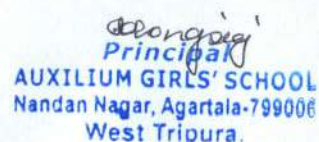 Principal
AUXILIUM GIRLS' SCHOOL
Nandan Nagar, Agartala-799006
West Tripura.